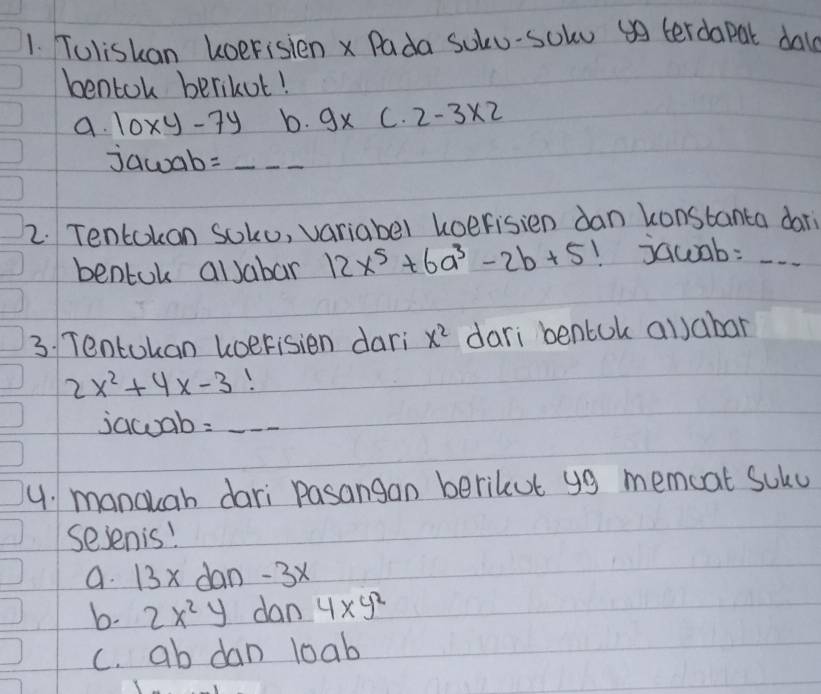 1. Tuliskan koefisien x Pada suku-suku yg terdapat
bentuk berikut!
a. 10xy - 7y b. 9x c. 2 - 3x2
jawab = ---
2. Tentukan suku, variabel koefisien dan konstanta dari
bentuk aljabar 12x⁵ + 6a³ - 2b + 5! jawab: ---
3. Tentukan koefisien dari x² dari bentuk aljabar
2x² + 4x - 3!
jawab = ---
4. manakah dari pasangan berikut yg memuat suku
sejenis!
a. 13x dan -3x
b. 2x²y dan 4xy²
c. ab dan 10ab